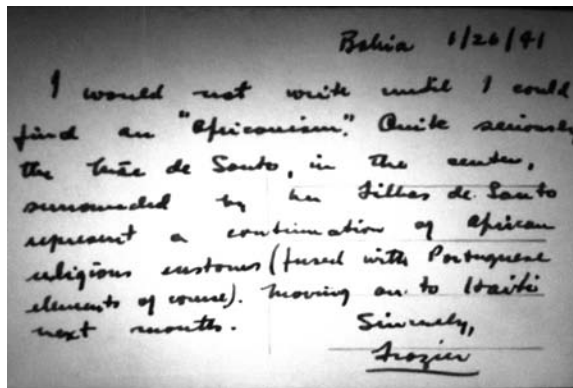 Bahia 1/26/41
I would not write until I could
find an "Africanism". Quite seriously
the Mãe de Santo, in the center,
surrounded by her Filhas de Santo
represent a continuation of African
religious customs (fused with Portuguese
elements of course). Moving on to Haiti
next month.
Sincerely,
Frazier